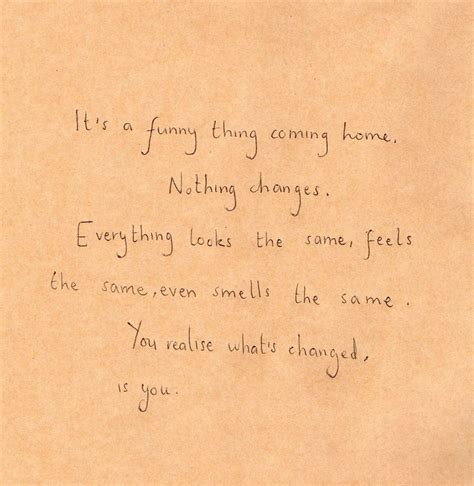 It's a funny thing coming home.
Nothing changes.
Everything looks the same, feels
the same, even smells the same.
You realise what's changed,
is you.